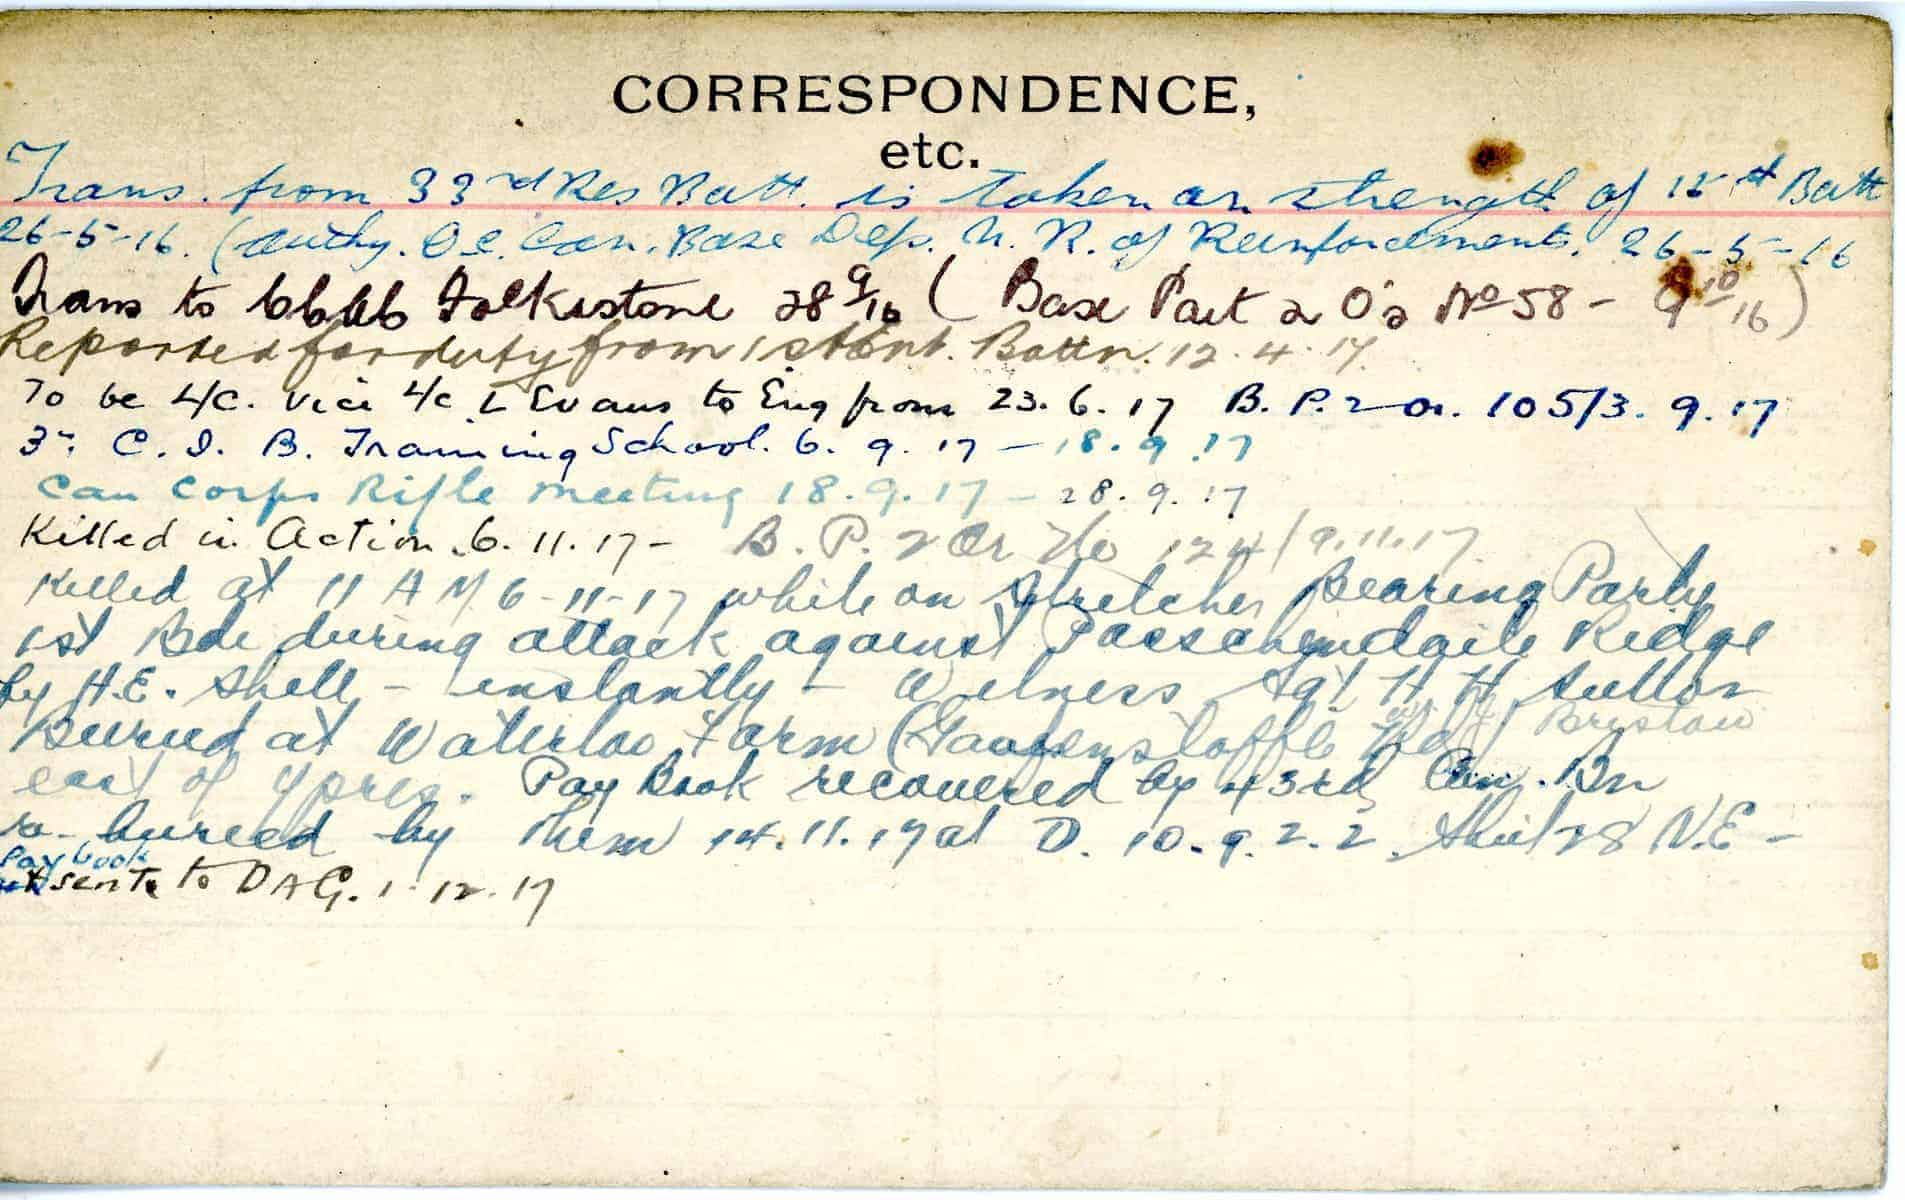 CORRESPONDENCE,
etc.
Trans. from 33rd Res Batt. is taken on strength of 1st Batt
26-5-16. (Authy. O.C. Can. Base Dep. N. R. of Reinforcements. 26-5-16
Trans to Folkestone 28 9/16 (Base Part 2 O's No 58 - 9 10/16)
Reported for duty from 1st Ent. Battn. 12.4.17.
To be L/C. vice L/C L Evans to Eng from 23.6.17 B.P. 2 Or. 105/3.9.17
3rd C.I.B. Training School. 6.9.17 - 18.9.17
Can Corps Rifle Meeting 18.9.17 - 28.9.17
Killed in Action. 6.11.17 - B.P. 2 Or No 124/9.11.17
Killed at 11 AM 6-11-17 while on Stretcher Bearing Party
1st Bde during attack against Passchendaele Ridge
by H.E. Shell - instantly - Witness Sgt H H Sutton
Buried at Waterloo Farm ( Bristow
east of Ypres. Pay Book recovered by 43rd Can. Bn
re-buried by them 14.11.17 at D. 10. 9. 2. 2. Sheet 28 N.E -
Pay book
sent to DAG. 1-12-17